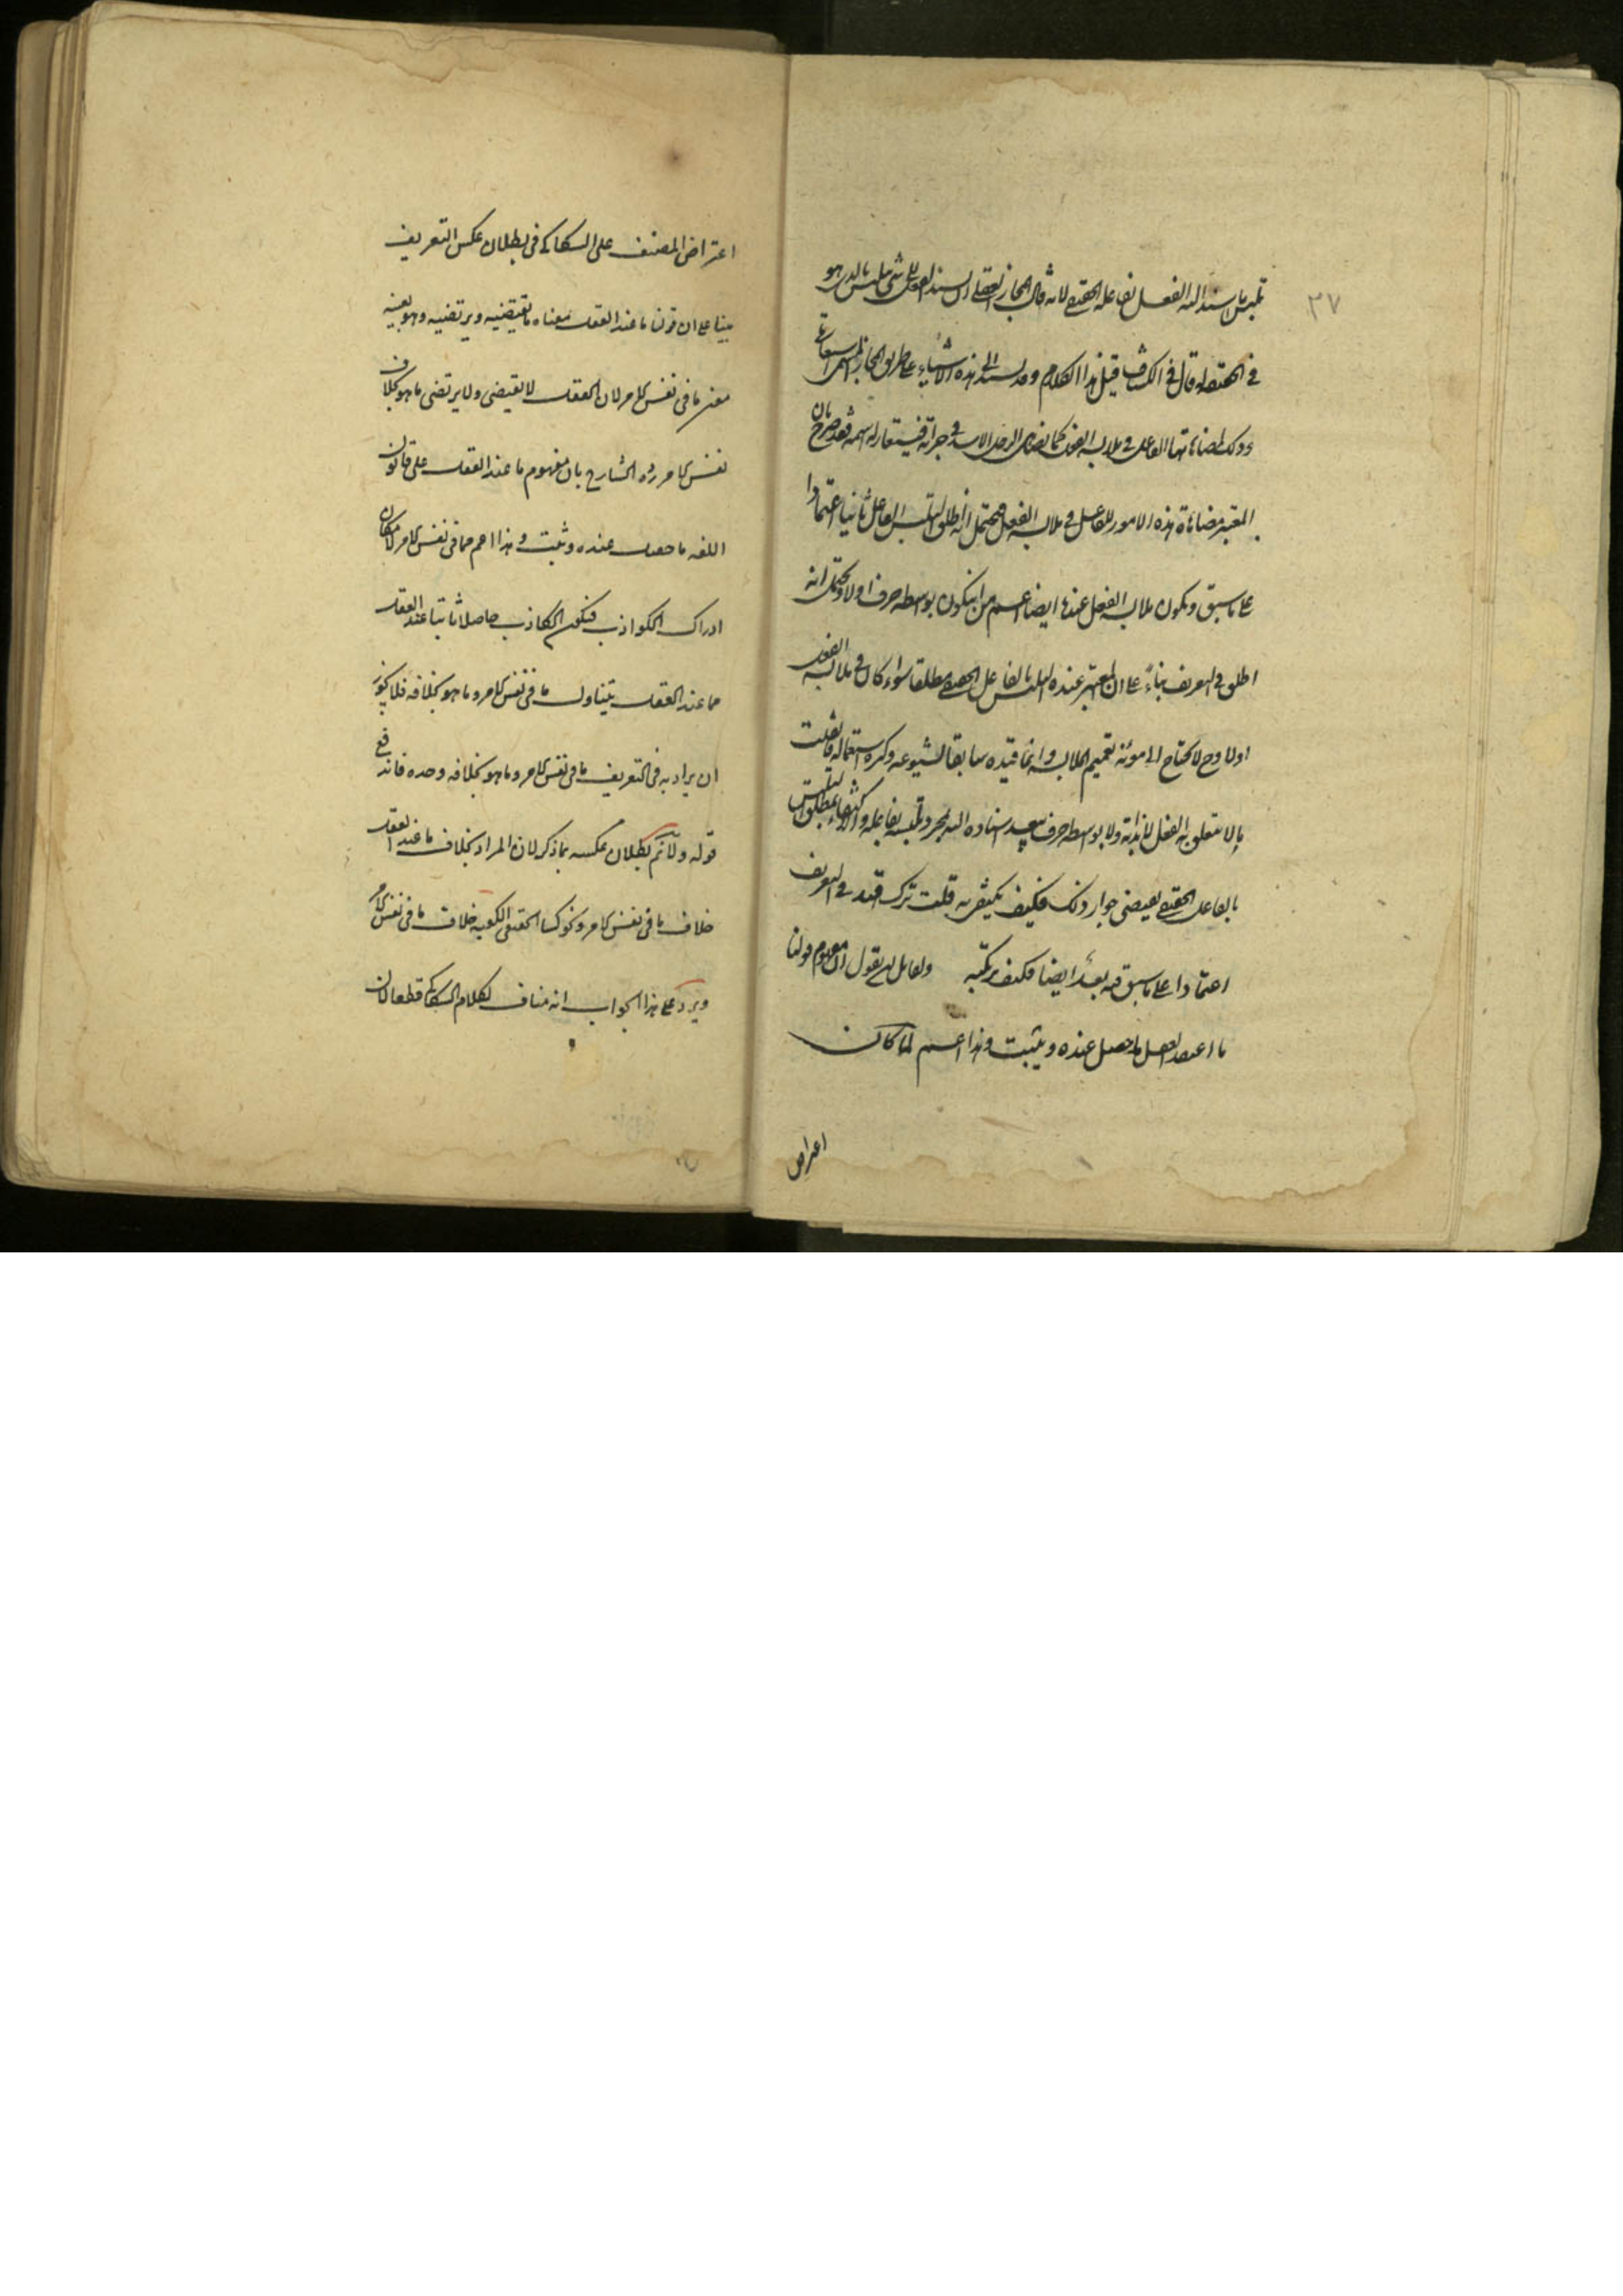 ٣٧
تلبس ما يسند اليه الفعل بفاعله الحقيقي لانه قال المجاز العقلي ان يسند الفعل الى شيء يتلبس بالذي هو
في الحقيقة له قال في الكشاف قبل هذا الكلام وقد يسند الى هذه الاشياء على طريق المجاز المسمى استعارة
وذلك لمضاهاتها الفاعل في ملابسة الفعل كما يضاهي الرجل الاسد في جراته فيستعار له اسمه فقد صرح بان
المعتبر مضاهاة هذه الامور للفاعل في ملابسة الفعل فيحتمل انه اطلق تلبس الفاعل ثانيا اعتمادا
على ما سبق ويكون ملابسة الفعل عندها ايضا اعم من ان يكون بواسطة حرف او لا ويحتمل انه
اطلق في التعريف بناء على ان المعتبر عنده التلبس بالفاعل الحقيقي مطلقا سواء كان في ملابسة الفعل
او لا وح لا يحتاج الى موئنة تعميم الملابسة وانما قيده سابقا لشيوعه وكثرة استعماله فان قلت
ما لا يتعلق به الفعل لا بذاته ولا بواسطة حرف يبعد اسناده اليه بمجرد تلبسه بفاعله والاكتفاء بمطلق التلبس
بالفاعل الحقيقي يقتضي جواز ذلك فكيف يكتفي به قلت ترك القيد في التعريف
اعتمادا على ما سبق فيه بعد ايضا فكيف يرتكبه ولقائل ان يقول ان مفهوم قولنا
ما عند العقل ما حصل عنده ويثبت وهذا اعم لما كان
اعتراض
اعتراض المصنف على السكاكي في بطلان عكس التعريف
مبنيا على ان قولنا ما عند العقل معناه ما يقتضيه ويرتضيه وهو بعينه
معنى ما في نفس الامر لان العقل لا يقتضي ولا يرتضي ما هو بخلاف
نفس الامر رده الشارح بان مفهوم ما عند العقل على قانون
اللغة ما حصل عنده وثبت وهذا اعم مما في نفس الامر لامكان
ادراك الكواذب فيكون الكاذب حاصلا ثابتا عند العقل
فما عند العقل يتناول ما في نفس الامر وما هو بخلافه فلا يجوز
ان يراد به في التعريف ما في نفس الامر وما هو بخلافه وحده فاندفع
قوله ولا نم بطلان عكسه بما ذكر لان المراد بخلاف ما عند العقل
خلاف ما في نفس الامر ونحو كسا الخليفة الكعبة خلاف ما في نفس الامر
ويرد على هذا الجواب انه مناف لكلام السكاكي قطعا لان